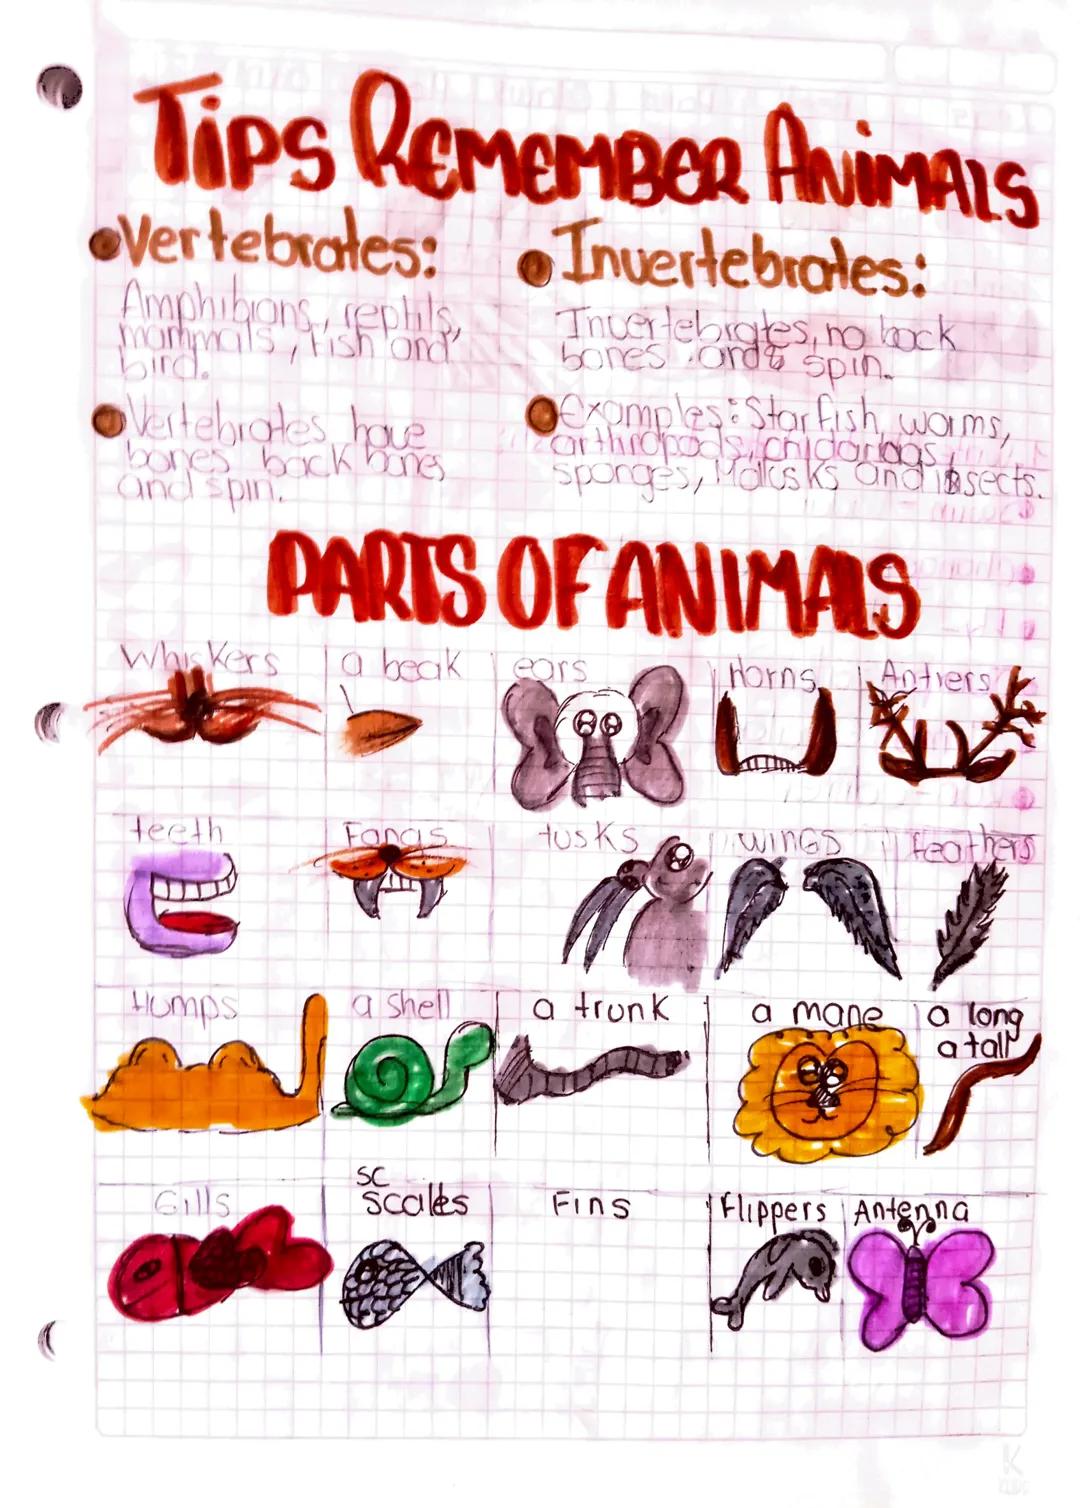 Tips Remember Animals
Vertebrates:
Amphibians, reptils,
mammals, fish and
bird.
Vertebrates have
bones back bones
and spin.
Invertebrates:
Invertebrates, no back
bones and spin.
Examples: Star fish, worms,
arthropods, cnidarias,
sponges, Molusks and insects.
PARTS OF ANIMALS
Whiskers
a beak
ears
Horns
Antlers
teeth
Fangs
tusks
WINGS
feathers
Humps
a shell
a trunk
a mane
a long
a tail
Gills
sc
scales
Fins
Flippers
Antenna